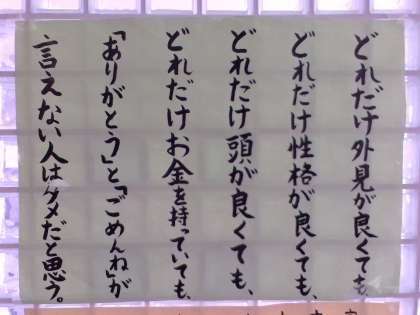 どれだけ外見が良くても、
どれだけ性格が良くても、
どれだけ頭が良くても、
どれだけお金を持っていても、
「ありがとう」と「ごめんね」が
言えない人はダメだと思う。